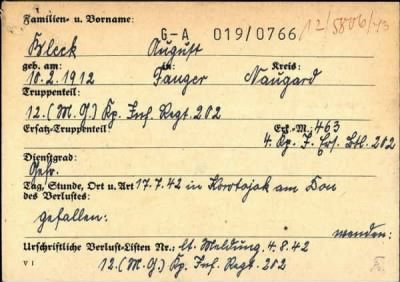 Familien- u. Vorname:
G-A 019/0766
12/5806/43
Kleck August
geb. am: in: Kreis:
10.2.1912 Fanger Naugard
Truppenteil
12.(M.G.) Kp. Inf. Regt. 202
Ersatz-Truppenteil Erk.-M. 463
4. Kp. I. Ers. Btl. 202
Dienstgrad:
Gefr.
Tag, Stunde, Ort u. Art 17.7.42 in Korotojak am Don,
des Verlustes:
gefallen:
wenden:
Urschriftliche Verlust-Listen Nr.: lt. Meldung 4.8.42
V I 12.(M.G.) Kp. Inf. Regt. 202